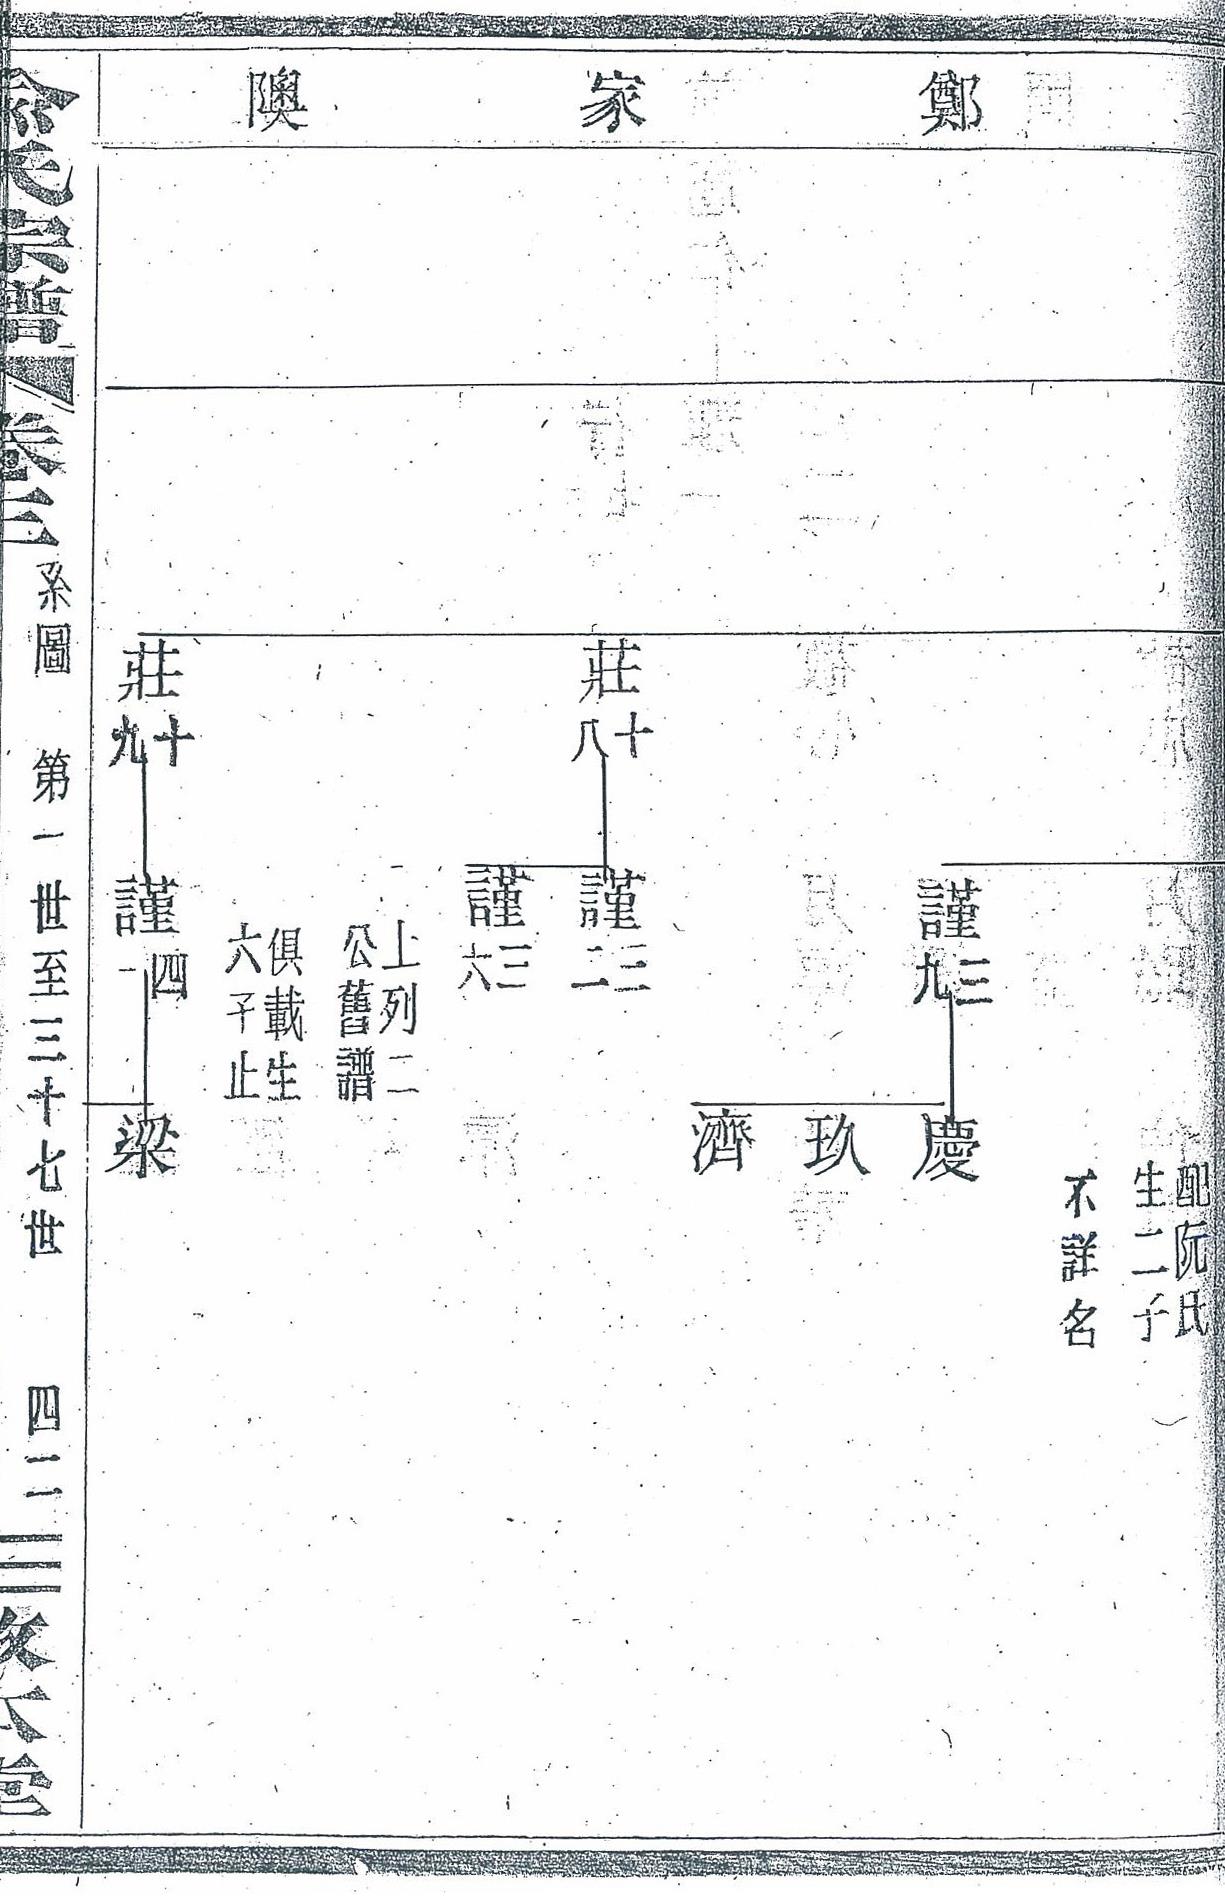 鄭家隩
配阮氏
生二子
不詳名
謹三九
慶
玖
濟
莊十八
謹三二
謹三六
上列二
公舊譜
俱載生
六子止
莊十九
謹四一
梁
氏宗譜
卷三
系圖 第一世至三十七世 四二
堂